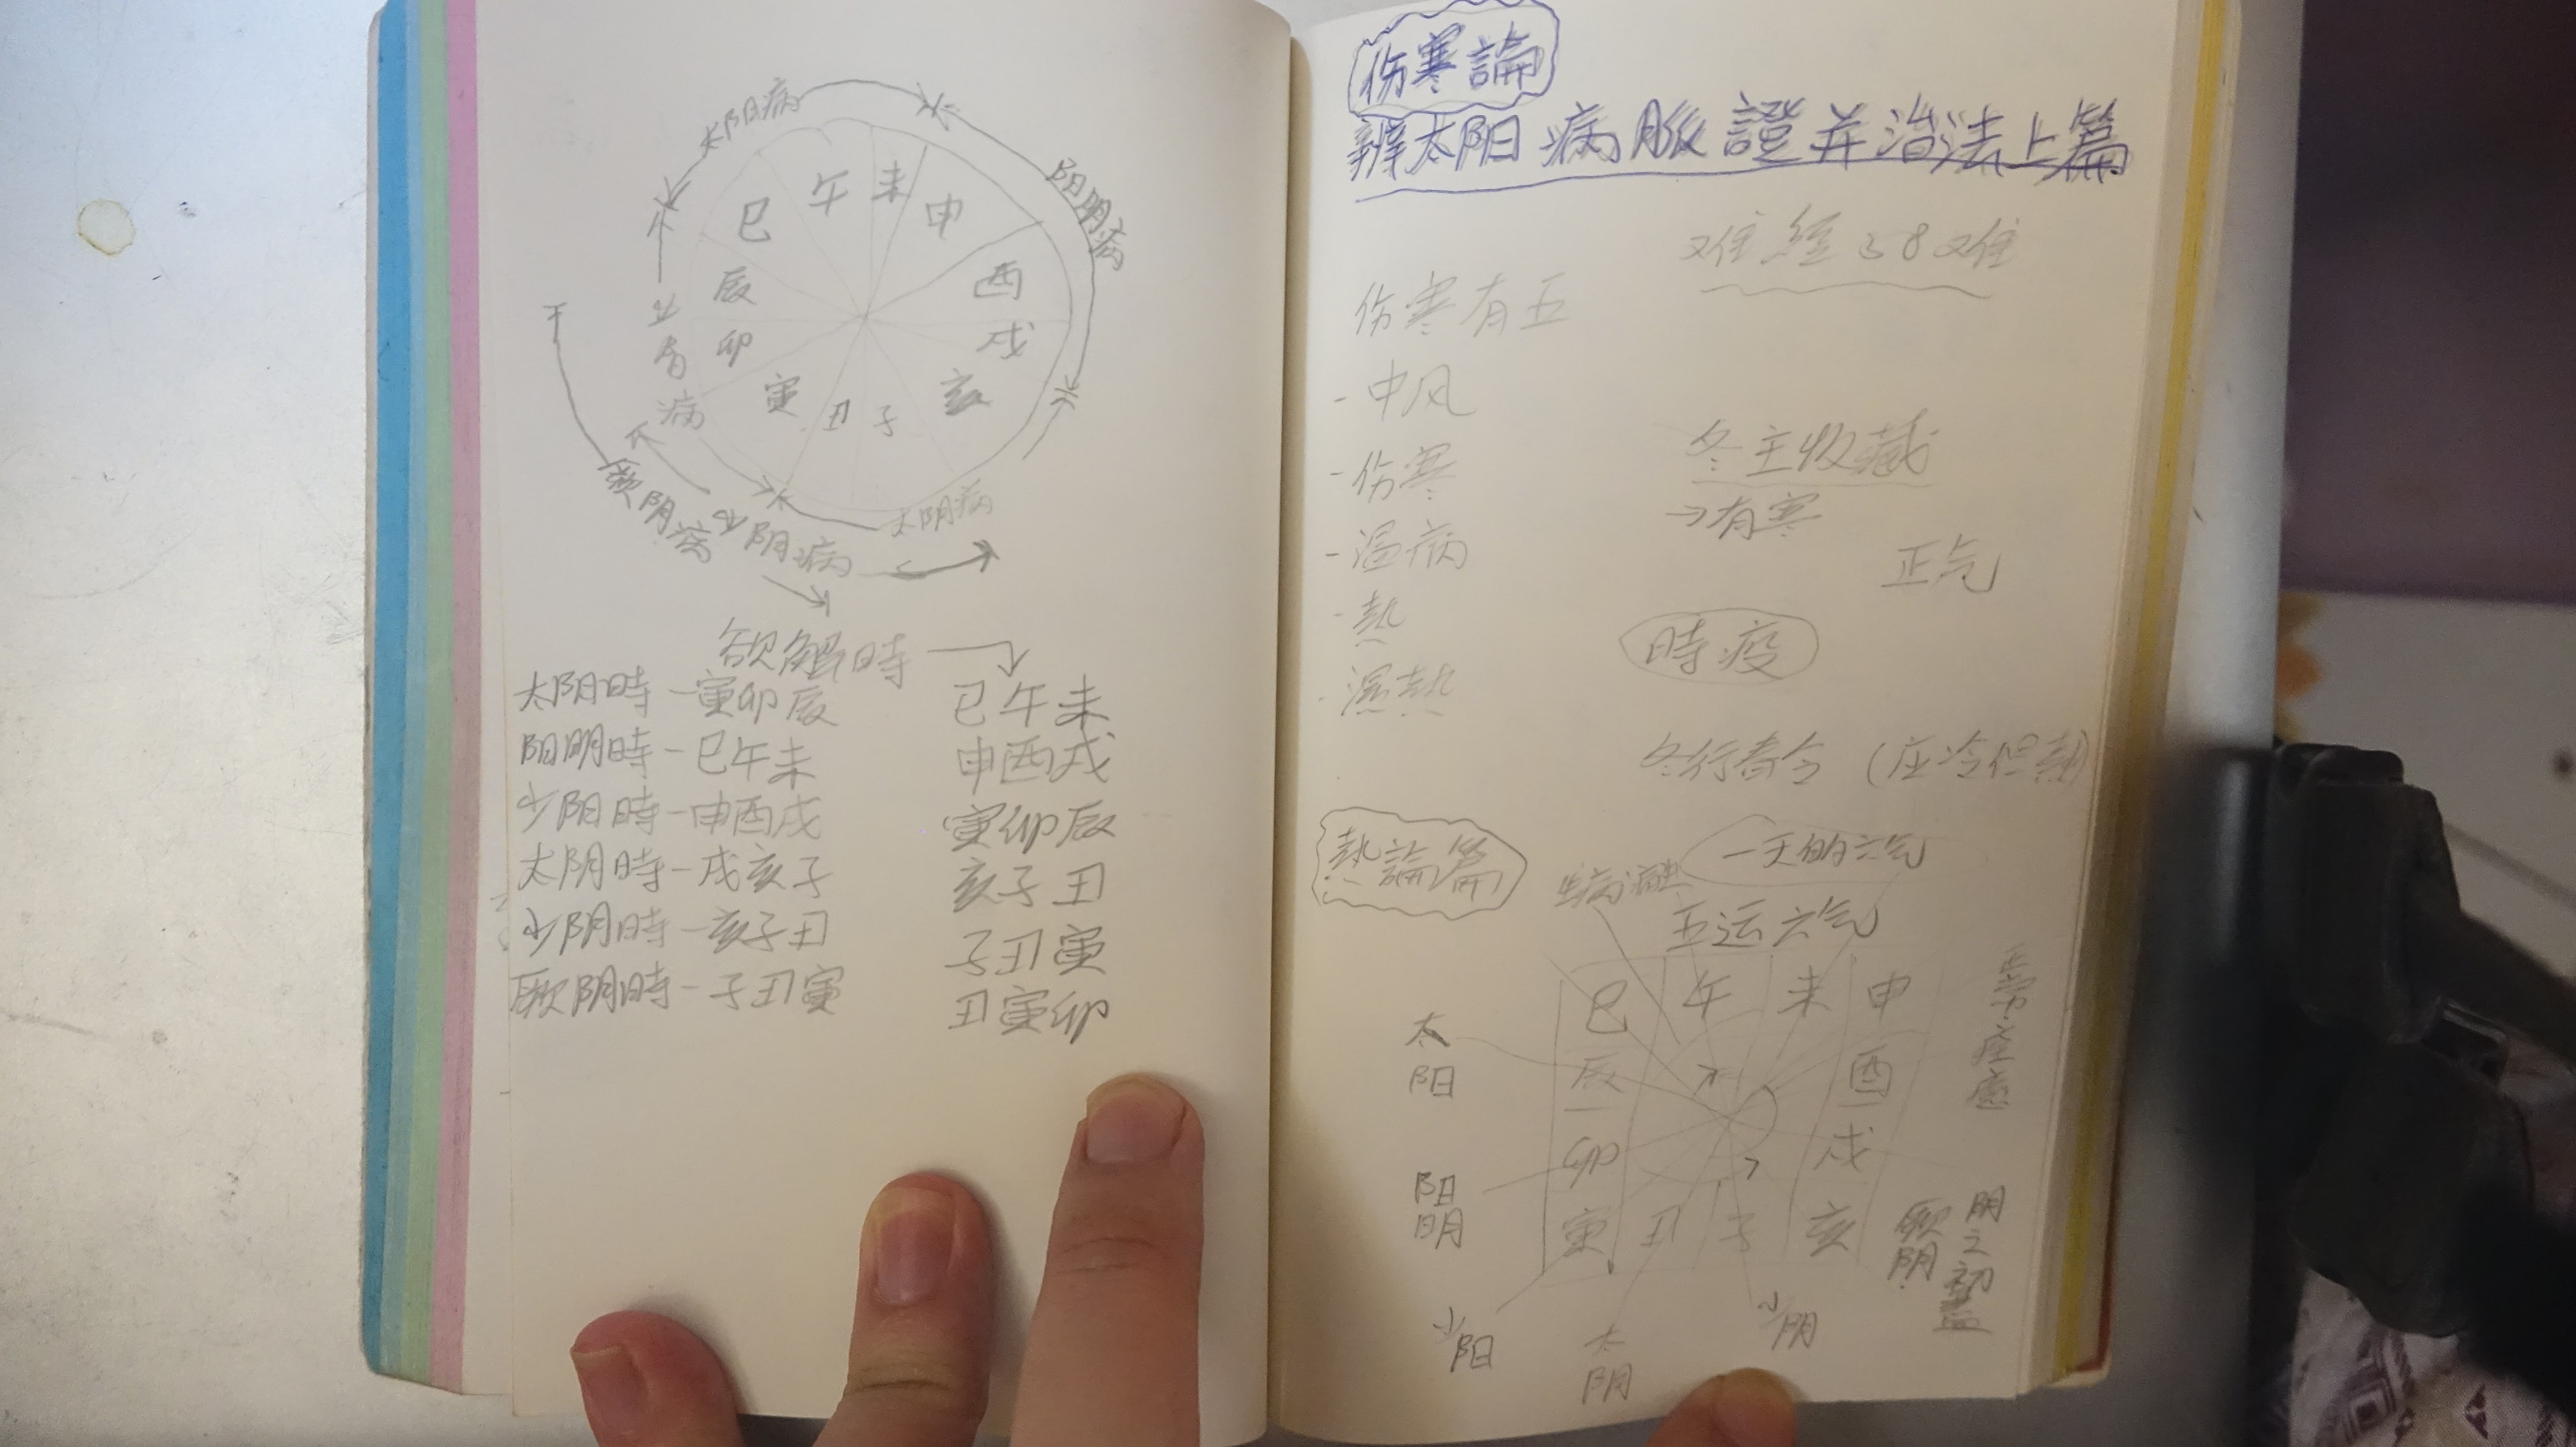 太阳病
阳明病
午 未
巳 申
辰 酉
卯 戌
寅 丑 子 亥
少阳病
太阴病
厥阴病 少阴病
欲解時
太阳時 - 寅卯辰 巳午未
阳明時 - 巳午未 申酉戌
少阳時 - 申酉戌 寅卯辰
太阴時 - 戌亥子 亥子丑
少阴時 - 亥子丑 子丑寅
厥阴時 - 子丑寅 丑寅卯
伤寒論
辨太阳病脈證并治法上篇
难經58难
伤寒有五
- 中风
- 伤寒
- 温病
- 熱
- 濕熱
冬主收藏
→有寒
正气
時疫
冬行春令 (应冷但熱)
熱論篇
一天的六气
五运六气
巳 午 未 申
辰 酉
卯 戌
寅 丑 子 亥
太阳
阳明
少阳
太阴
少阴
厥阴